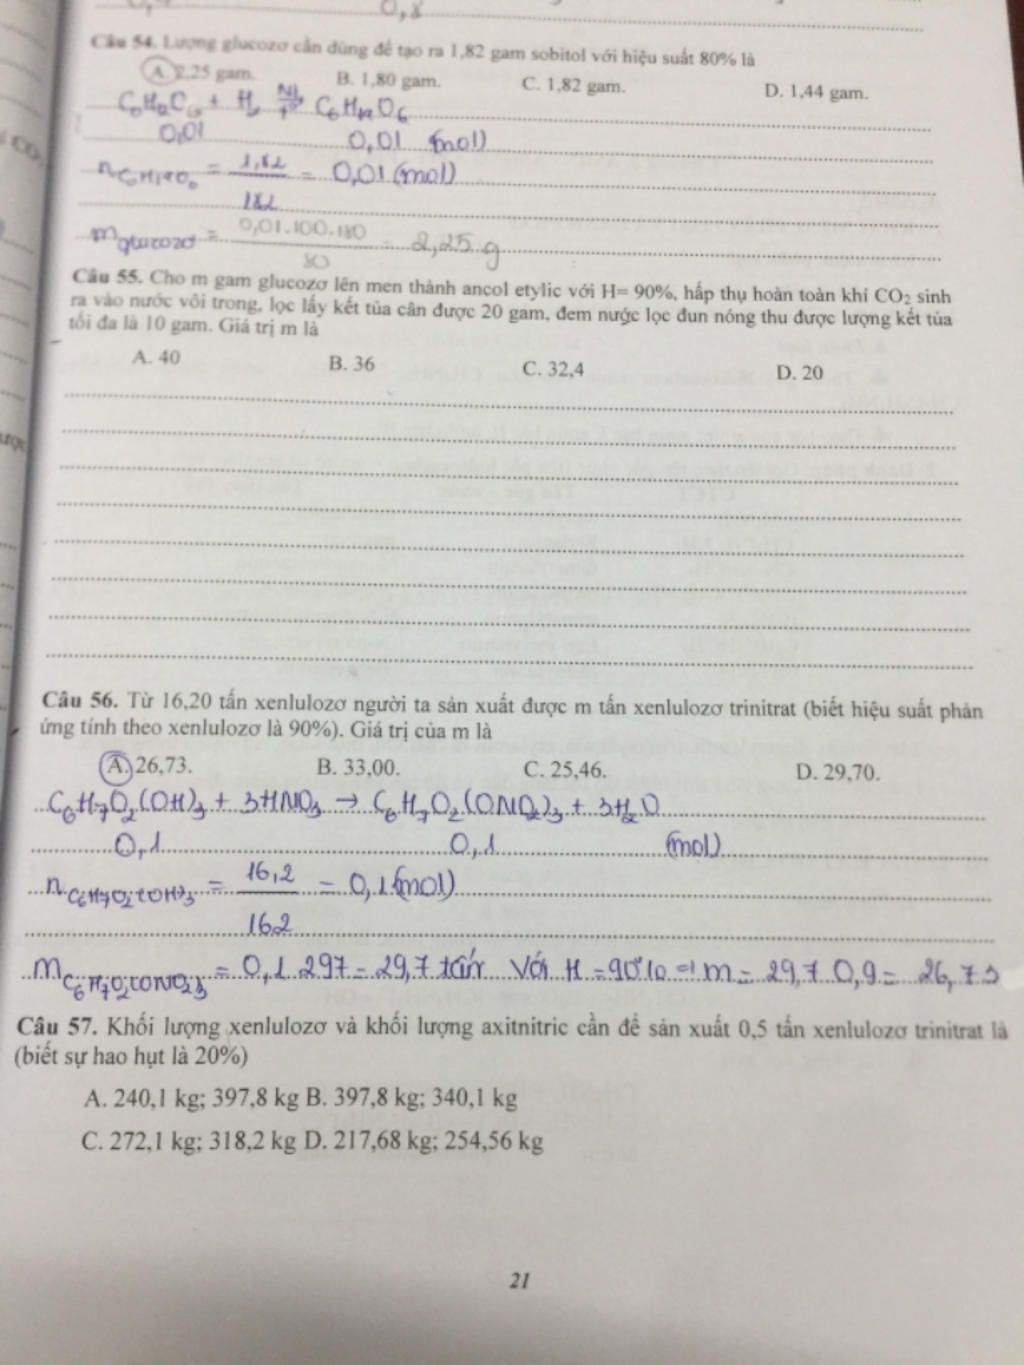 0,8
Câu 54. Lượng glucozơ cần dùng để tạo ra 1,82 gam sobitol với hiệu suất 80% là
A. 2,25 gam. B. 1,80 gam. C. 1,82 gam. D. 1,44 gam.
C6H12O6 + H2 Ni t° C6H14O6
0,01 0,01 (mol)
nC6H14O6 = 1,82 / 182 = 0,01 (mol)
mglucozơ = 0,01.100.180 / 80 = 2,25 g
Câu 55. Cho m gam glucozơ lên men thành ancol etylic với H= 90%, hấp thụ hoàn toàn khí CO2 sinh
ra vào nước vôi trong, lọc lấy kết tủa cân được 20 gam, đem nước lọc đun nóng thu được lượng kết tủa
tối đa là 10 gam. Giá trị m là
A. 40 B. 36 C. 32,4 D. 20
Câu 56. Từ 16,20 tấn xenlulozơ người ta sản xuất được m tấn xenlulozơ trinitrat (biết hiệu suất phản
ứng tính theo xenlulozơ là 90%). Giá trị của m là
A. 26,73. B. 33,00. C. 25,46. D. 29,70.
C6H7O2(OH)3 + 3HNO3 → C6H7O2(ONO2)3 + 3H2O
0,1 0,1 (mol)
nC6H7O2(OH)3 = 16,2 / 162 = 0,1 (mol)
mC6H7O2(ONO2)3 = 0,1.297 = 29,7 tấn Với H = 90% => m = 29,7.0,9 = 26,73
Câu 57. Khối lượng xenlulozơ và khối lượng axitnitric cần để sản xuất 0,5 tấn xenlulozơ trinitrat là
(biết sự hao hụt là 20%)
A. 240,1 kg; 397,8 kg B. 397,8 kg; 340,1 kg
C. 272,1 kg; 318,2 kg D. 217,68 kg; 254,56 kg
21